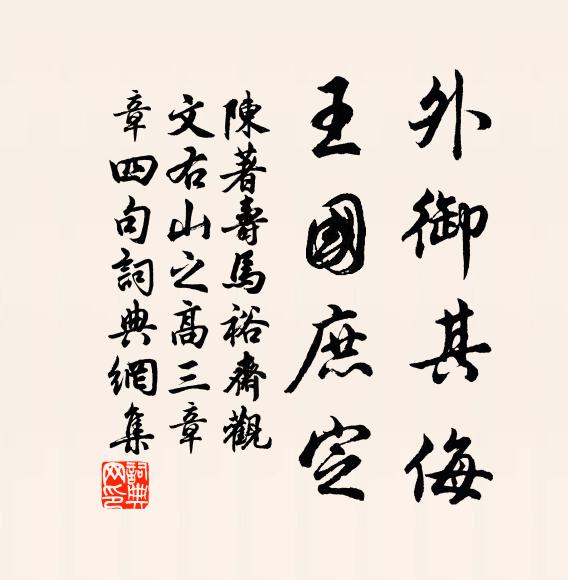 外御其侮
王國庶定
陳著壽馬裕齋觀
文右山之高三章
章四句詞典網集
詞典网印